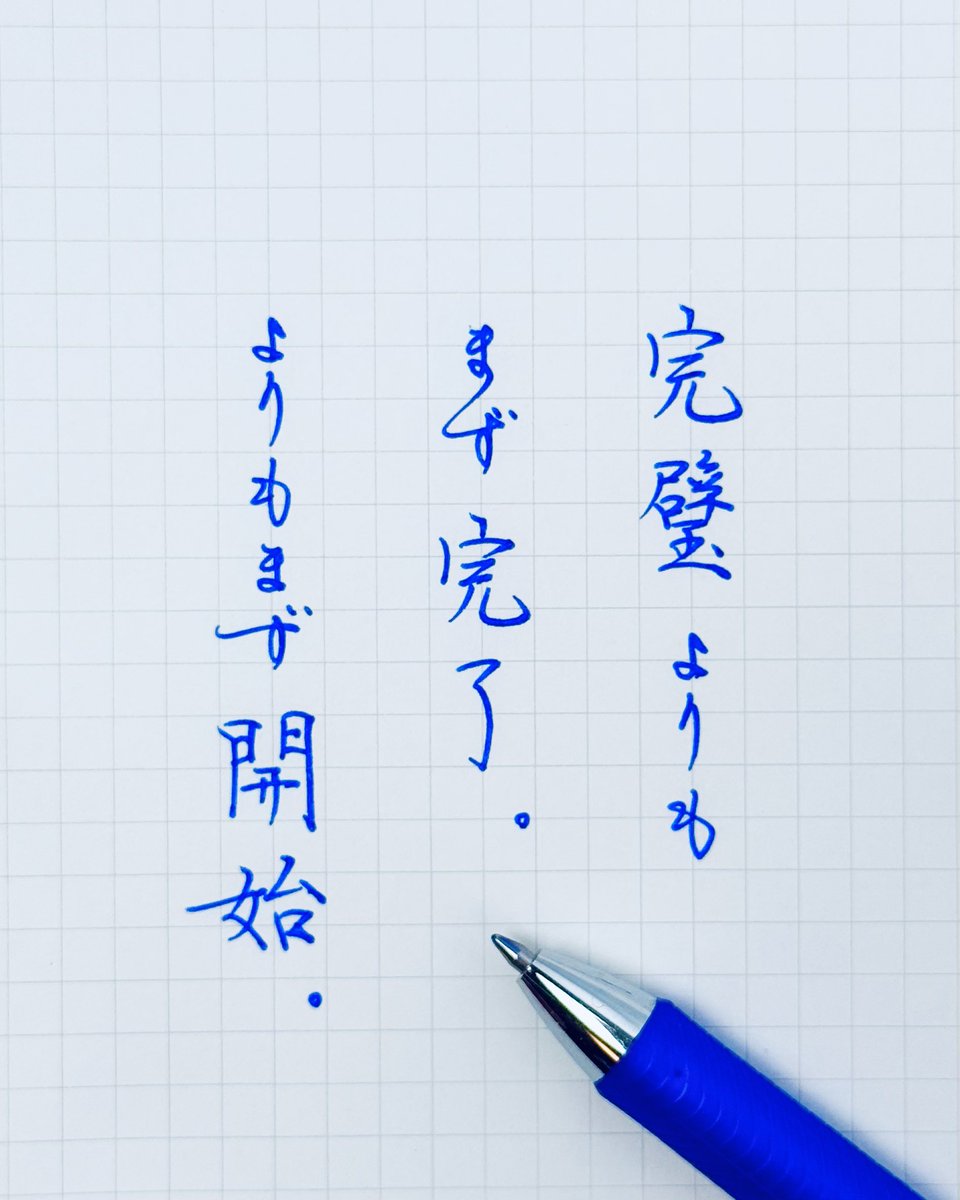 完璧よりも
まず完了。
よりもまず開始。